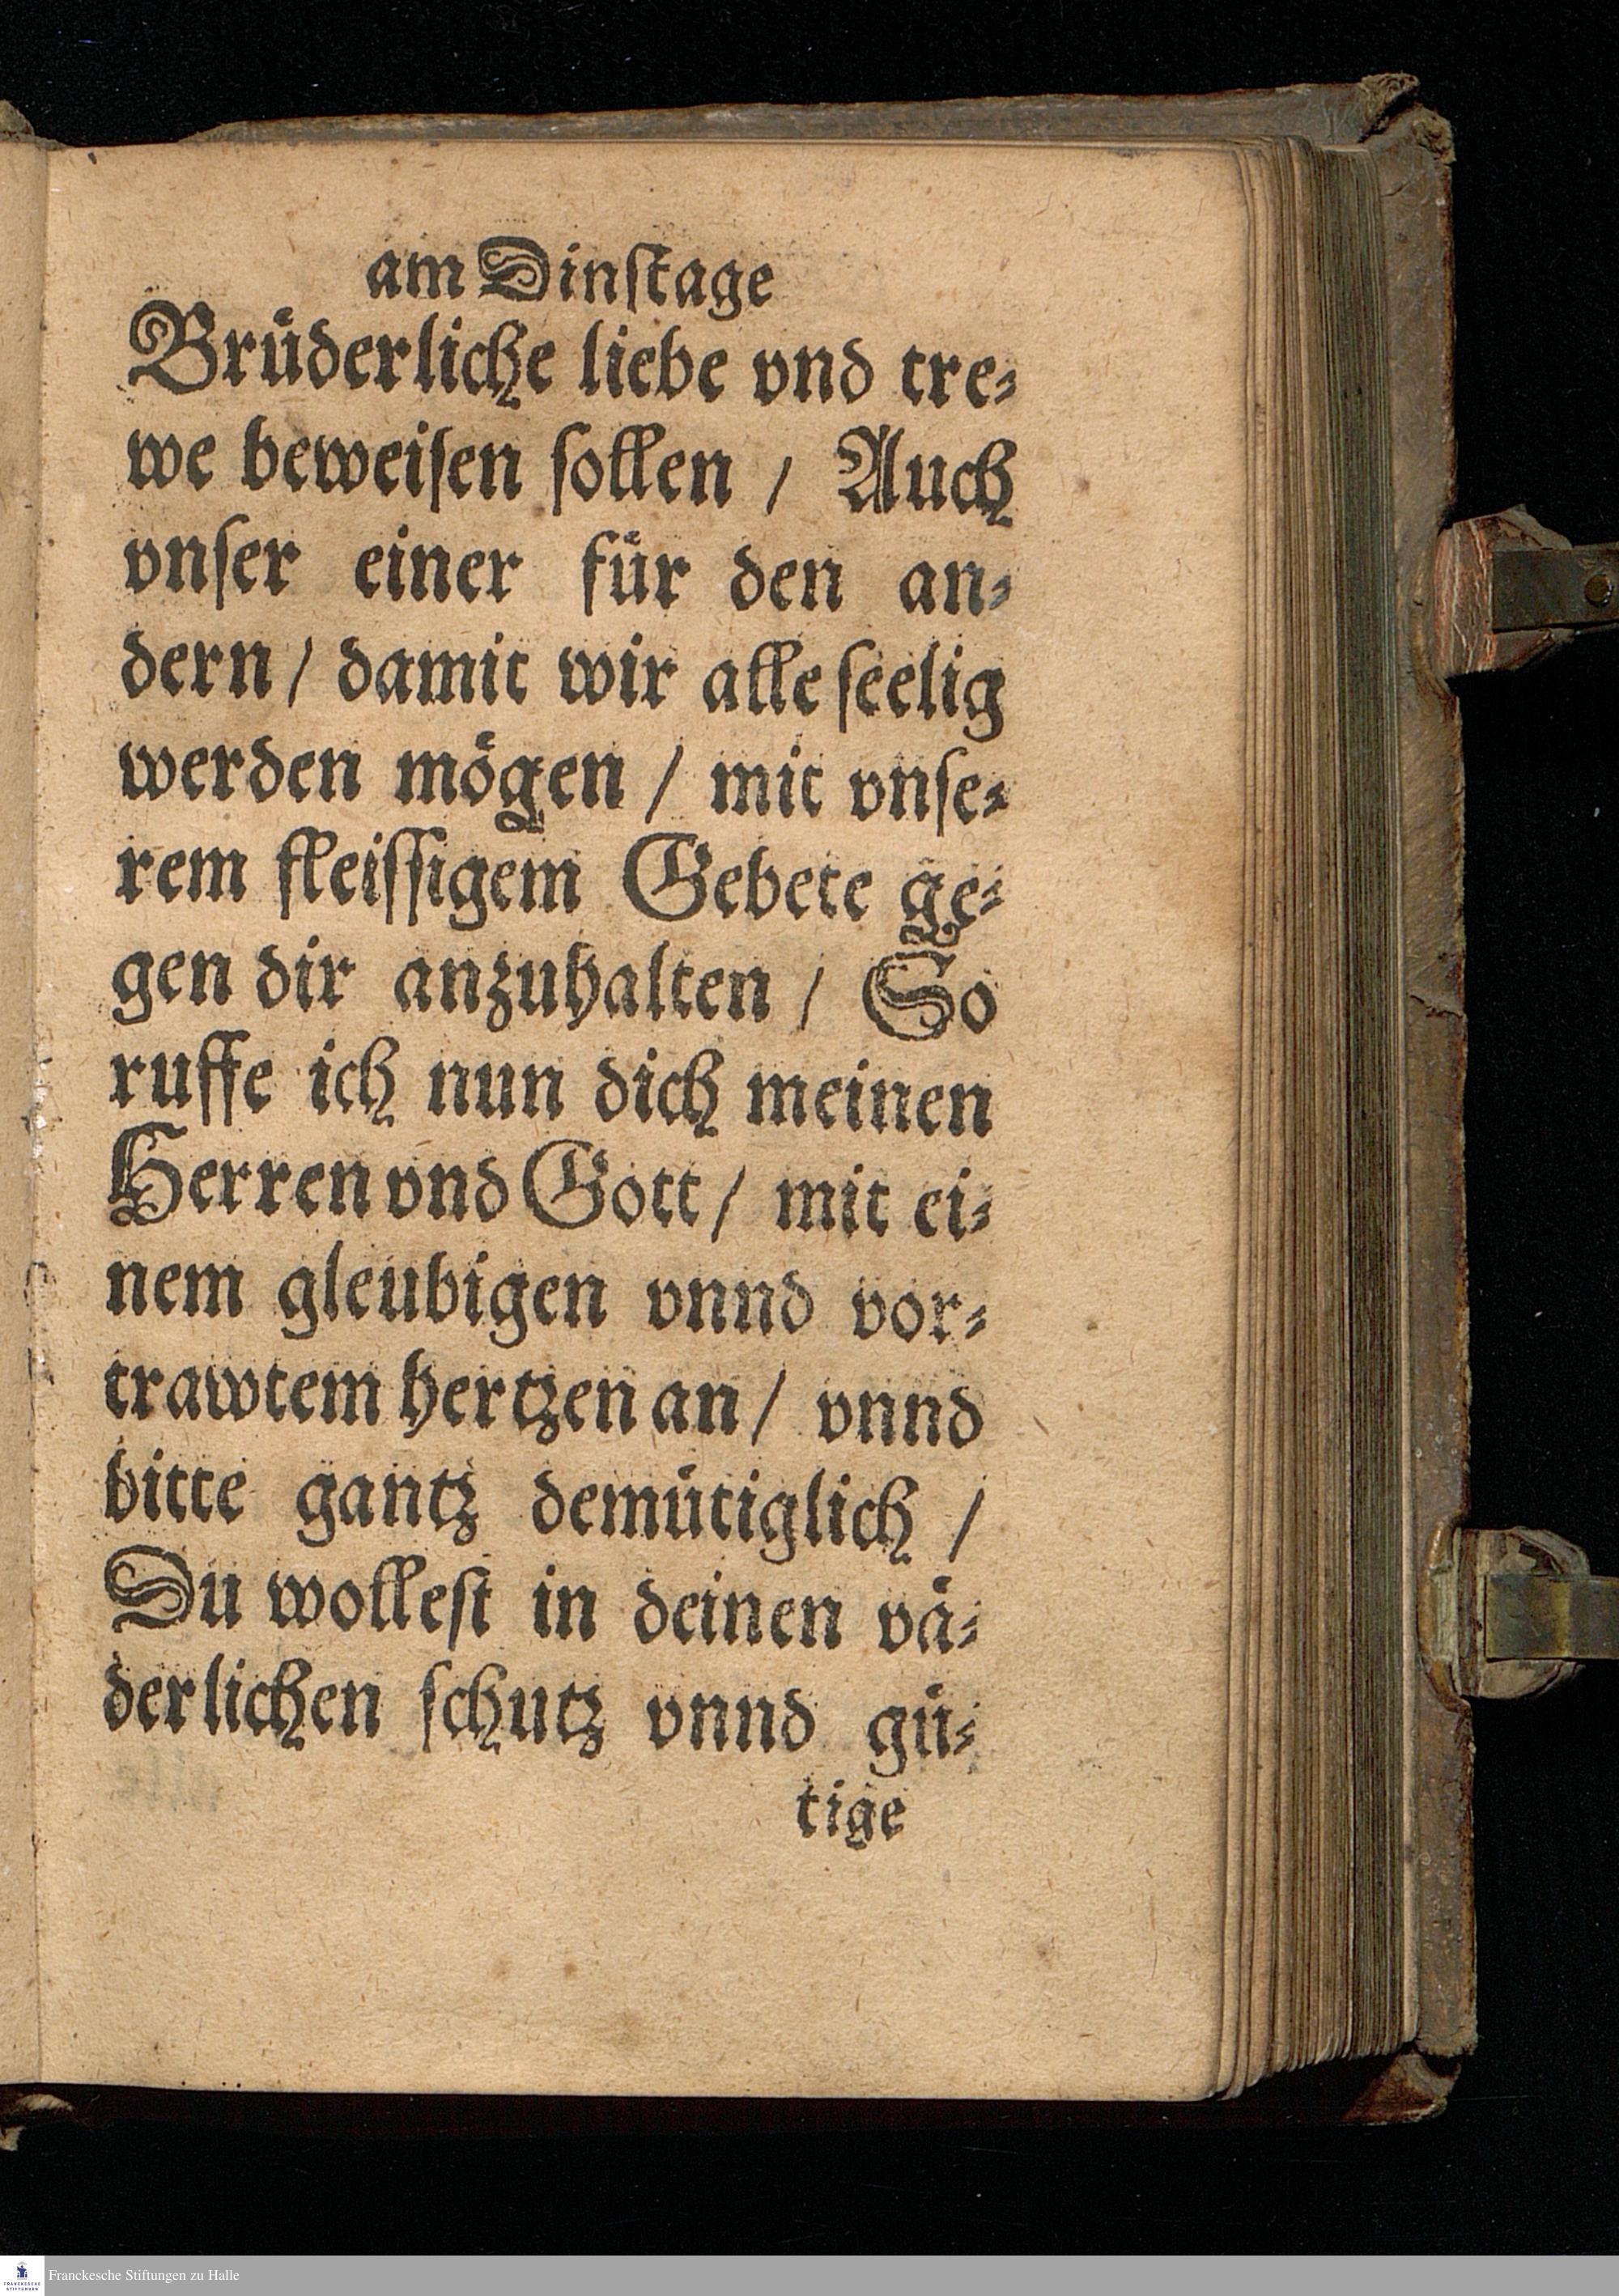 am Dinstage
Brüderliche liebe vnd tre⸗
we beweisen sollen / Auch
vnser einer für den an⸗
dern / damit wir alle seelig
werden mögen / mit vnse⸗
rem fleissigem Gebete ge⸗
gen dir anzuhalten / So
ruffe ich nun dich meinen
Herren vnd Gott / mit ei⸗
nem gleubigen vnnd vor⸗
trawtem hertzen an / vnnd
bitte gantz demütiglich /
Du wollest in deinen vä⸗
derlichen schutz vnnd gü⸗
tige
FRANCKESCHE
STIFTUNGEN
Franckesche Stiftungen zu Halle